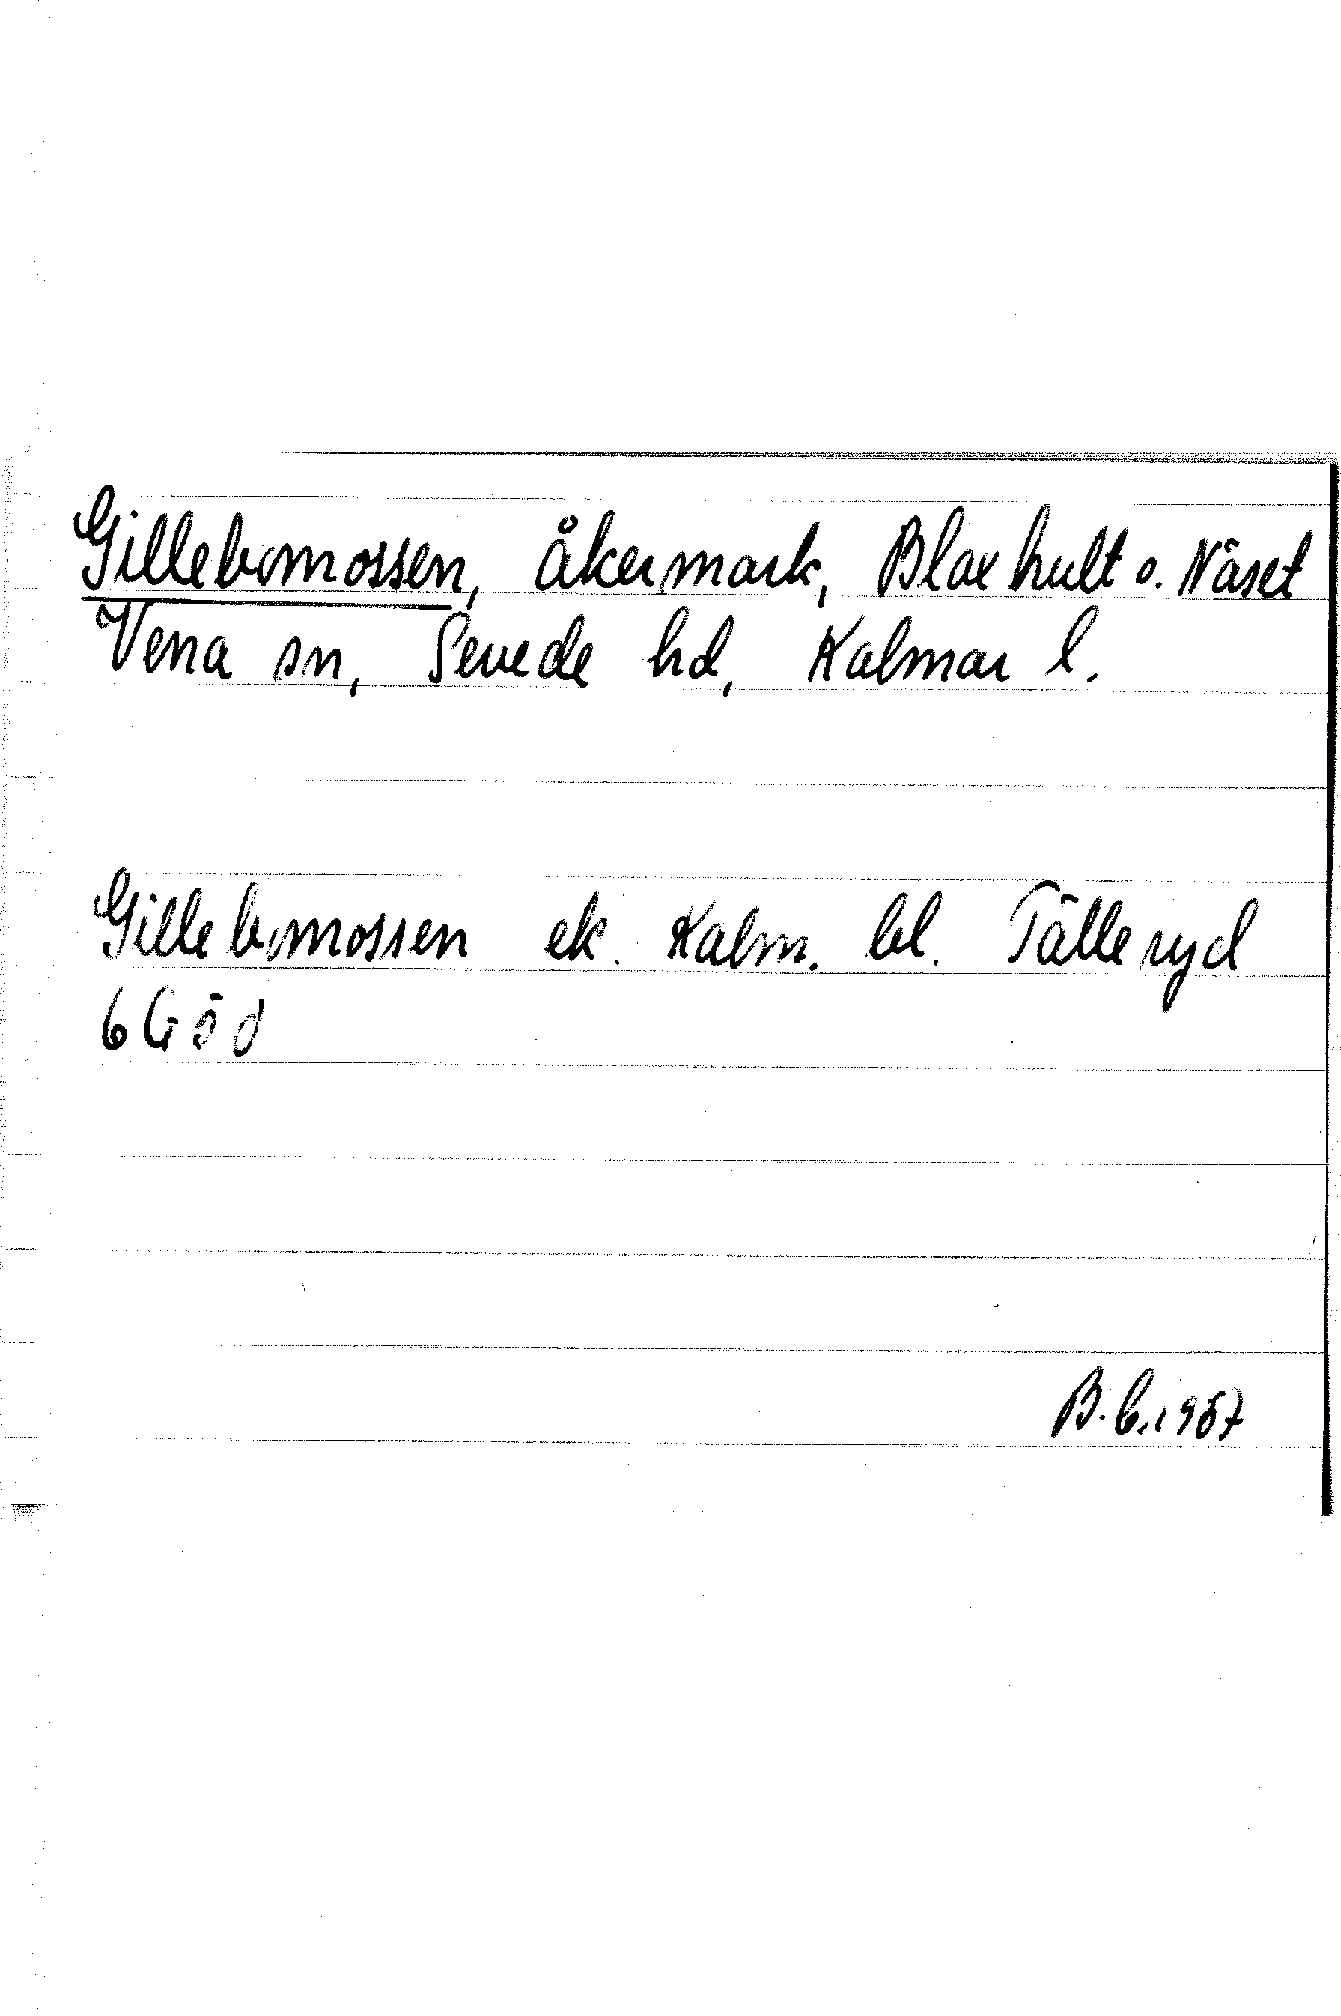 Gillebomossen, åkermark, Blaxhult o. Näset
Vena sn, Sevede hd, Kalmar l.
Gillebomossen ek. Kalm. bl. Tälleryd
6G5d
B.b.1957